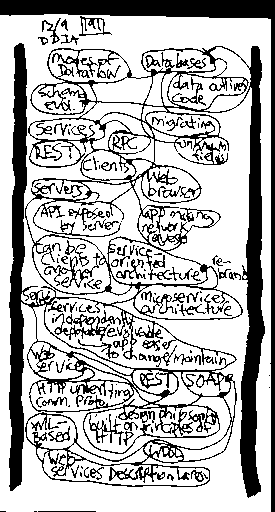 12/9 191
DDIA
modes of Databases
dataflow
data outlives
code
schema
evol.
migrating
services
RPC unknown
fields
REST
clients
servers web
browser
API exposed
by server
app making
network
requests
can be
clients to
another
service
service
oriented
architecture re-
brand
microservices
architecture
services
independently
deployable/evolvable
app easier
to change/maintain
web
services
REST SOAP
HTTP underlying
comm. proto.
design philosophy
built on principles of
HTTP
XML-
Based
WSDL
web
services Description Lang.